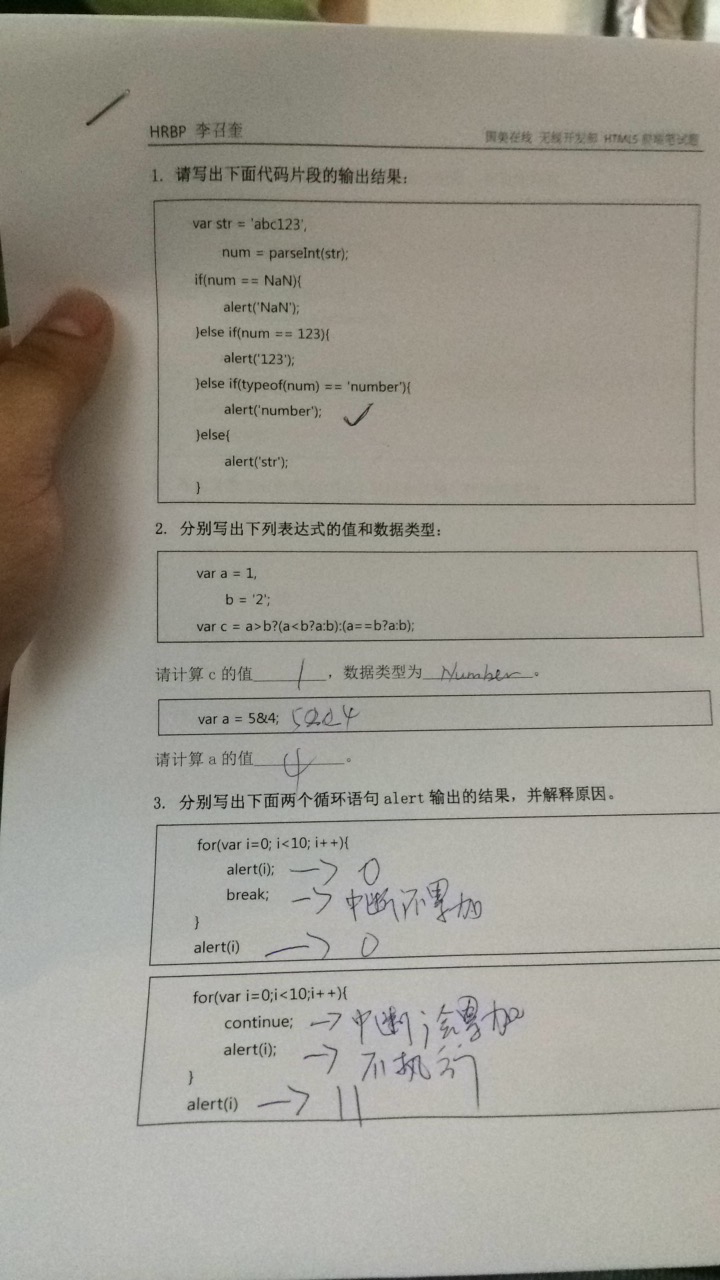 HRBP 李召奎
国美在线 无线开发部 HTML5 前端笔试题
1. 请写出下面代码片段的输出结果：
var str = 'abc123',
num = parseInt(str);
if(num == NaN){
alert('NaN');
}else if(num == 123){
alert('123');
}else if(typeof(num) == 'number'){
alert('number'); ✓
}else{
alert('str');
}
2. 分别写出下列表达式的值和数据类型：
var a = 1,
b = '2';
var c = a>b?(a<b?a:b):(a==b?a:b);
请计算 c 的值 1 ，数据类型为 Number 。
var a = 5&4; 5&&4
请计算 a 的值 4 。
3. 分别写出下面两个循环语句 alert 输出的结果，并解释原因。
for(var i=0; i<10; i++){
alert(i); —> 0
break; —> 中断 i不累加
}
alert(i) —> 0
for(var i=0;i<10;i++){
continue; —> 中断 i会累加
alert(i); —> 不执行
}
alert(i) —> 11